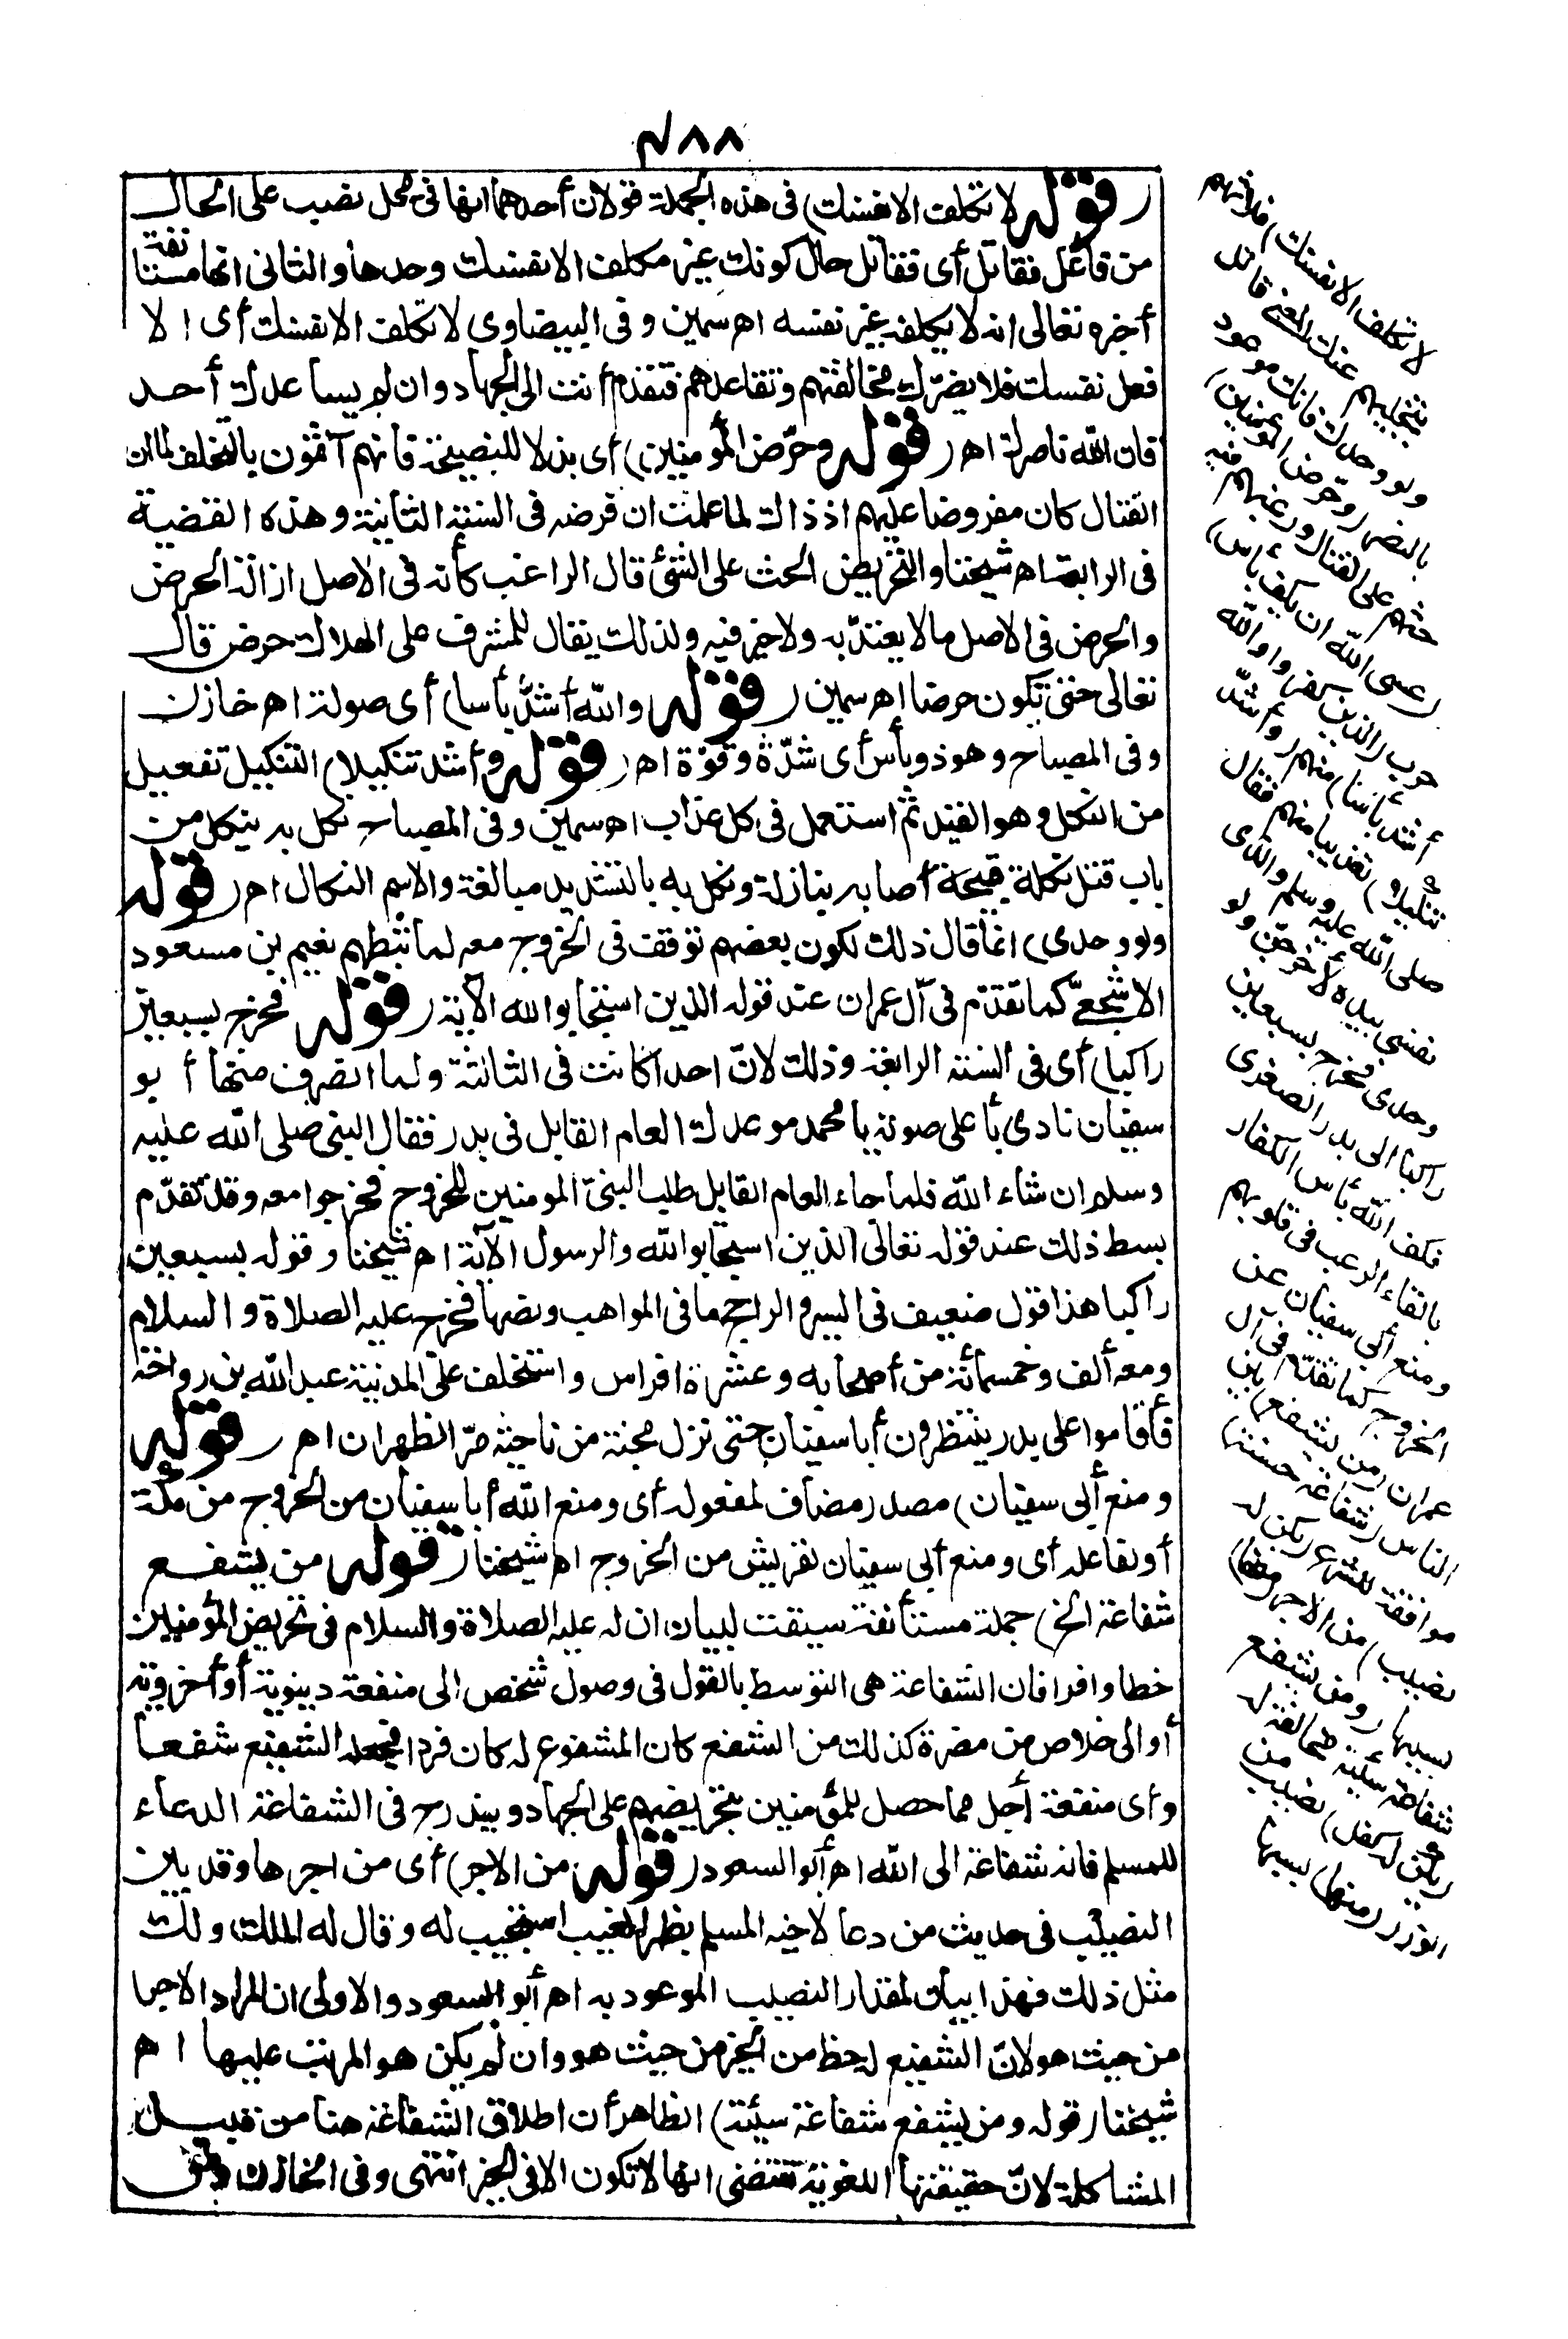 ٤٨٨
(قوله لا تكلف الا نفسك) في هذه الجملة قولان أحدهما انها في محل نصب على الحال
من فاعل فقاتل أي فقاتل حال كونك غير مكلف الا نفسك وحدها والثاني انها مستأنفة
أخبره تعالى انه لا يكلف غير نفسه اه سمين وفي البيضاوي لا تكلف الا نفسك أي الا
فعل نفسك فلا يضرك مخالفتهم وتقاعدهم فتقدم أنت الى الجهاد وان لم يساعدك أحد
فان الله ناصرك اه (قوله وحرّض المؤمنين) أي بذلا للنصيحة فانهم آثمون بالتخلف لما ان
القتال كان مفروضا عليهم اذ ذاك لما علمت ان فرضه في السنة الثانية وهذه القضية
في الرابعة اه شيخنا والتحريض الحث على الشئ قال الراغب كأنه في الاصل ازالة الحرض
والحرض في الاصل ما لا يعتدّ به ولا خير فيه ولذلك يقال للمشرف على الهلاك حرض قال
تعالى حتى تكون حرضا اه سمين (قوله والله أشدّ بأسا) أي صولة اه خازن
وفي المصباح وهو ذو بأس أي شدّة وقوّة اه (قوله وأشد تنكيلا) التنكيل تفعيل
من النكل وهو القيد ثم استعمل في كل عذاب اه سمين وفي المصباح نكل به ينكل من
باب قتل نكلة قبيحة أصابه بنازلة ونكل به بالتشديد مبالغة والاسم النكال اه (قوله
ولو وحدي) انما قال ذلك لكون بعضهم توقف في الخروج معه لما ثبطهم نعيم بن مسعود
الاشجعيّ كما تقدم في آل عمران عند قوله الذين استجابوا لله الآية (قوله فخرج بسبعين
راكبا) أي في السنة الرابعة وذلك لانّ احدا كانت في الثالثة ولما انصرف منها أبو
سفيان نادى بأعلى صوته يا محمد موعدك العام القابل في بدر فقال النبي صلى الله عليه
وسلم ان شاء الله فلما جاء العام القابل طلب النبيّ المومنين للخروج فخرجوا معه وقد تقدّم
بسط ذلك عند قوله تعالى الذين استجابوا لله والرسول الآية اه شيخنا وقوله بسبعين
راكبا هذا قول ضعيف في السير والراجح ما في المواهب ونصها فخرج عليه الصلاة والسلام
ومعه ألف وخمسمائة من أصحابه وعشرة افراس واستخلف على المدينة عبد الله بن رواحة
فأقاموا على بدر ينتظرون أبا سفيان حتى نزل مجنة من ناحية مرّ الظهران اه (قوله
ومنع أبي سفيان) مصدر مضاف لمفعوله أي ومنع الله أبا سفيان من الخروج من مكة
أو لفاعله أي ومنع أبي سفيان لقريش من الخروج اه شيخنا (قوله من يشفع
شفاعة الخ) جملة مستأنفة سيقت لبيان ان له عليه الصلاة والسلام في تحريض المؤمنين
حظا وافرا فان الشفاعة هي التوسط بالقول في وصول شخص الى منفعة دنيوية أو أخروية
أو الى خلاص من مضرة كذلك من الشفع كان المشفوع له كان فردا فجعله الشفيع شفعا
وأي منفعة أجل مما حصل للمؤمنين بتحريضهم على الجهاد ويندرج في الشفاعة الدعاء
للمسلم فانه شفاعة الى الله اه أبو السعود (قوله من الاجر) أي من اجرها وقد بين
النصيب في حديث من دعا لاخيه المسلم بظهر الغيب استجيب له وقال له الملك ولك
مثل ذلك فهذا بيان لمقدار النصيب الموعود به اه أبو السعود والاولى ان المراد الاجر
من حيث هو لانّ الشفيع له حظ من الخير من حيث هو وان لم يكن هو المرتب عليها اه
شيخنا (قوله ومن يشفع شفاعة سيئة) الظاهر أن اطلاق الشفاعة هنا من قبيل
المشاكلة لانّ حقيقتها اللغوية تقتضي انها لا تكون الا في الخير انتهى وفي الخازن
لا تكلف الا نفسك) فلا تهتم
بتخلفهم عنك المعنى قاتل
ولو وحدك فانك موعود
بالنصر (وحرّض المؤمنين)
حثهم على القتال ورغبهم فيه
(عسى الله ان يكف بأس)
حرب (الذين كفروا والله
أشد بأسا) منهم (وأشدّ
تنكيلا) تعذيبا منهم فقال
صلى الله عليه وسلم والذي
نفسي بيده لأخرجنّ ولو
وحدي فخرج بسبعين
راكبا الى بدر الصغرى
فكف الله بأس الكفار
بالقاء الرعب في قلوبهم
ومنع أبي سفيان عن
الخروج كما تقدّم في آل
عمران (من يشفع) بين
الناس (شفاعة حسنة)
موافقة للشرع (يكن له
نصيب) من الاجر (منها)
بسببها (ومن يشفع
شفاعة سيئة) مخالفة له
(يكن له كفل) نصيب من
الوزر (منها) بسببها